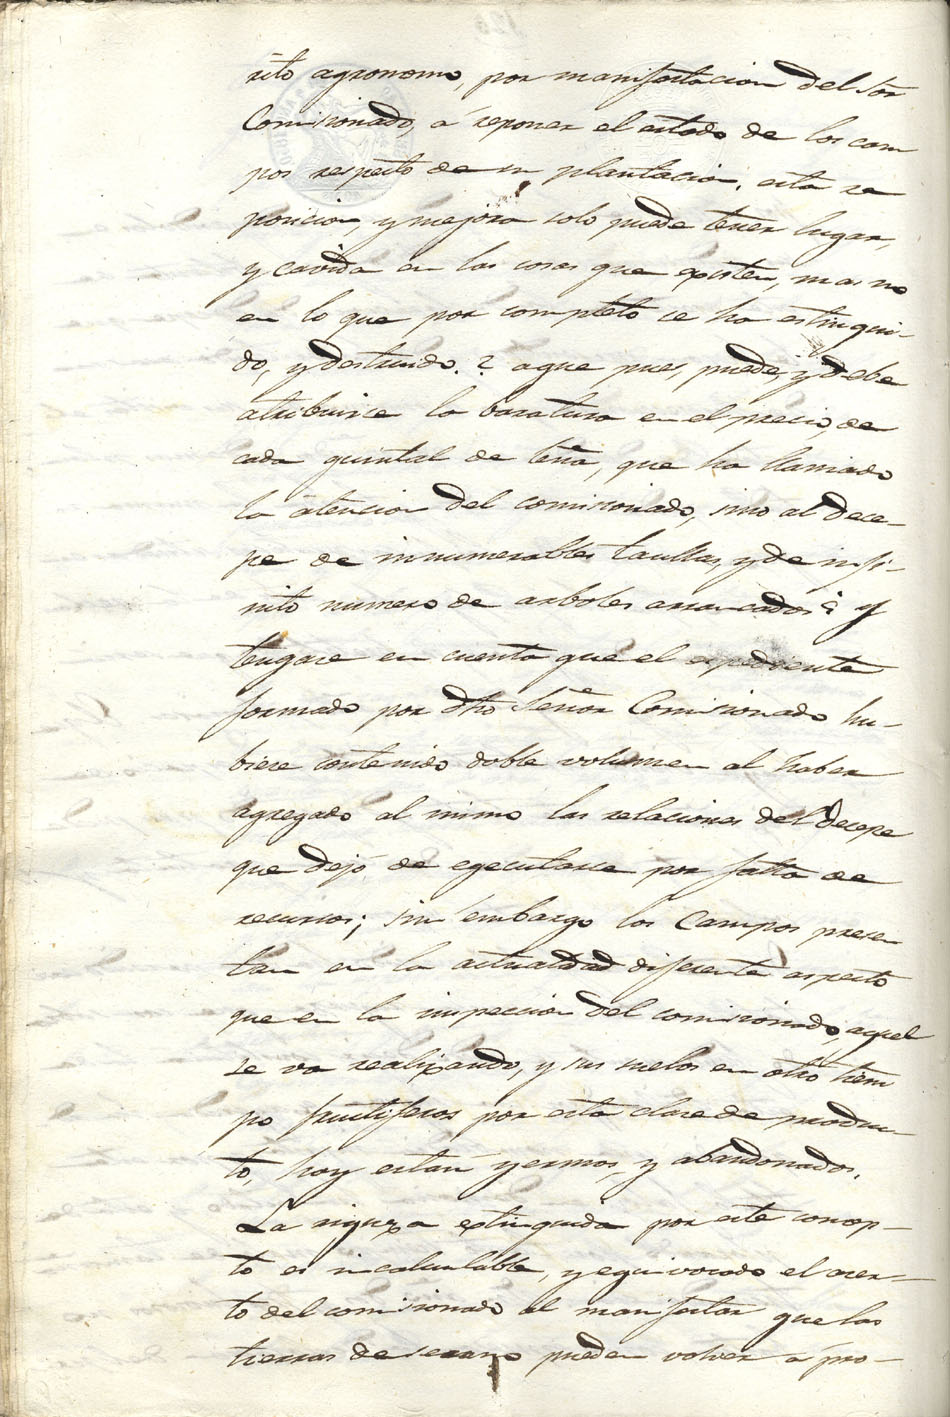 rito agronomo, por manifestacion del Sor
Comisionado, á reponer el estado de los cam
pos respecto de su plantacion, esta re
posicion, y mejora solo puede tener lugar,
y cavida en las cosas que existen, mas no
en lo que por completo se ha estinqui-
do, y destruido. ? aque pues, puede, y debe
atribuirse la baratura en el precio, de
cada quintal de leña, que ha llamado
la atencion del comisionado, sino al dece-
pe de innumerables taullas, y de infi-
nito numero de arboles arrancados? y
tengase en cuenta que el expediente
formado por dho Señor Comisionado hu-
biese contenido doble volumen al haber
agregado al mismo las relaciones del decepe
que dejó de egecutarse por falta de
recursos; sin embargo los Campos presen
tan en la actualidad diferente aspecto
que en la inspeccion del comisionado, aquel
se va realizando, y sus suelos en otro tiem
po fructiferos por esta clase de produc-
to, hoy estan yermos, y abandonados.
La riqueza extinguida por este concep-
to es incalculable, y equivocado el acer-
to del comisionado al manifestar que las
tierras de secano pueden volver á pro-